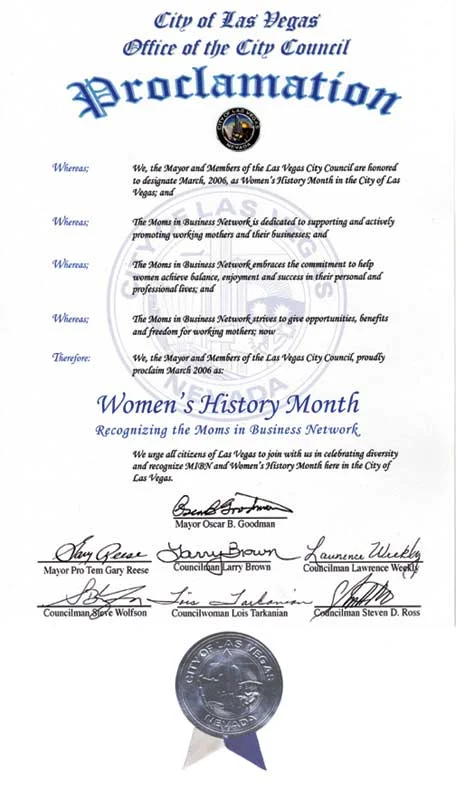 City of Las Vegas
Office of the City Council
Proclamation
CITY OF LAS VEGAS
NEVADA
Whereas; We, the Mayor and Members of the Las Vegas City Council are honored
to designate March, 2006, as Women's History Month in the City of Las
Vegas; and
Whereas; The Moms in Business Network is dedicated to supporting and actively
promoting working mothers and their businesses; and
Whereas; The Moms in Business Network embraces the commitment to help
women achieve balance, enjoyment and success in their personal and
professional lives; and
Whereas; The Moms in Business Network strives to give opportunities, benefits
and freedom for working mothers; now
Therefore: We, the Mayor and Members of the Las Vegas City Council, proudly
proclaim March 2006 as:
CITY OF LAS VEGAS
NEVADA
Women's History Month
Recognizing the Moms in Business Network
We urge all citizens of Las Vegas to join with us in celebrating diversity
and recognize MIBN and Women's History Month here in the City of
Las Vegas.
Oscar B Goodman
Mayor Oscar B. Goodman
Gary Reese Larry Brown Lawrence Weekly
Mayor Pro Tem Gary Reese Councilman Larry Brown Councilman Lawrence Weekly
Lois Tarkanian
Councilman Steve Wolfson Councilwoman Lois Tarkanian Councilman Steven D. Ross
CITY OF LAS VEGAS
NEVADA